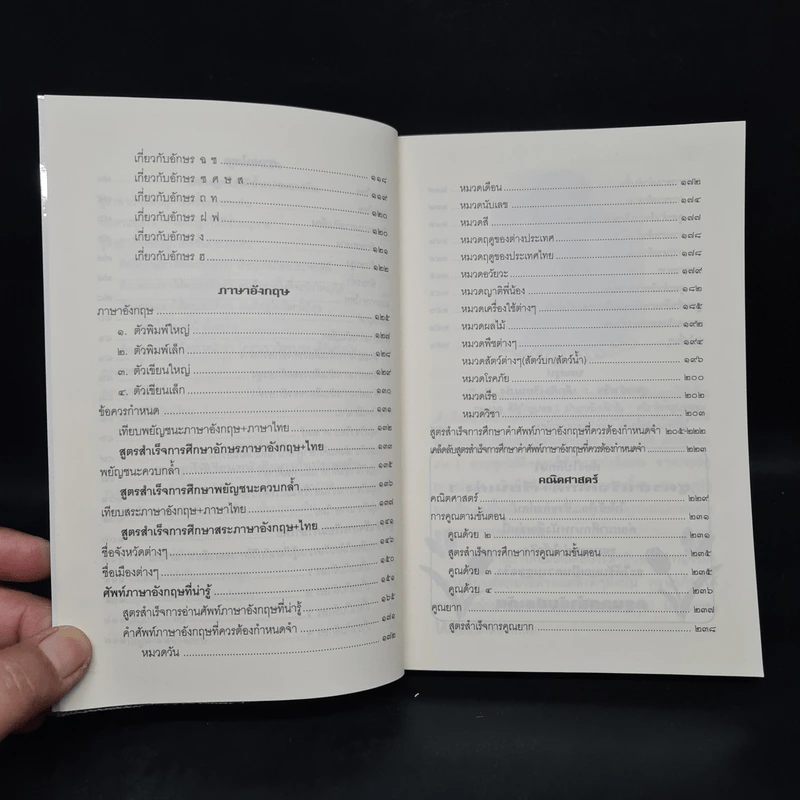 เกี่ยวกับอักษร ฉ ช ๑๑๘
เกี่ยวกับอักษร ซ ศ ษ ส ๑๑๙
เกี่ยวกับอักษร ถ ท ๑๒๐
เกี่ยวกับอักษร ฝ ฟ ๑๒๐
เกี่ยวกับอักษร ง ๑๒๑
เกี่ยวกับอักษร ฮ ๑๒๒
ภาษาอังกฤษ
ภาษาอังกฤษ ๑๒๕
๑. ตัวพิมพ์ใหญ่ ๑๒๗
๒. ตัวพิมพ์เล็ก ๑๒๘
๓. ตัวเขียนใหญ่ ๑๒๙
๔. ตัวเขียนเล็ก ๑๓๐
ข้อควรกำหนด ๑๓๑
เทียบพยัญชนะภาษาอังกฤษ+ภาษาไทย ๑๓๒
สูตรสำเร็จการศึกษาอักษรภาษาอังกฤษ+ไทย ๑๓๓
พยัญชนะควบกล้ำ ๑๓๕
สูตรสำเร็จการศึกษาพยัญชนะควบกล้ำ ๑๓๖
เทียบสระภาษาอังกฤษ+ภาษาไทย ๑๓๗
สูตรสำเร็จการศึกษาสระภาษาอังกฤษ+ไทย ๑๔๑
ชื่อจังหวัดต่างๆ ๑๔๖
ชื่อเมืองต่างๆ ๑๕๐
ศัพท์ภาษาอังกฤษที่น่ารู้ ๑๕๑
สูตรสำเร็จการอ่านศัพท์ภาษาอังกฤษที่น่ารู้ ๑๖๕
คำศัพท์ภาษาอังกฤษที่ควรต้องกำหนดจำ ๑๗๑
หมวดวัน ๑๗๒
หมวดเดือน ๑๗๒
หมวดนับเลข ๑๗๔
หมวดสี ๑๗๗
หมวดฤดูของต่างประเทศ ๑๗๘
หมวดฤดูของประเทศไทย ๑๗๘
หมวดอวัยวะ ๑๗๙
หมวดญาติพี่น้อง ๑๘๒
หมวดเครื่องใช้ต่างๆ ๑๘๕
หมวดผลไม้ ๑๙๒
หมวดพืชต่างๆ ๑๙๔
หมวดสัตว์ต่างๆ(สัตว์บก/สัตว์น้ำ) ๑๙๖
หมวดโรคภัย ๒๐๐
หมวดเรือ ๒๐๒
หมวดวิชา ๒๐๓
สูตรสำเร็จการศึกษาคำศัพท์ภาษาอังกฤษที่ควรต้องกำหนดจำ ๒๐๕-๒๒๒
เคล็ดลับสูตรสำเร็จการศึกษาคำศัพท์ภาษาอังกฤษที่ควรต้องกำหนดจำ ๒๒๓
คณิตศาสตร์
คณิตศาสตร์ ๒๒๙
การคูณตามขั้นตอน ๒๓๑
คูณด้วย ๒ ๒๓๑
สูตรสำเร็จการศึกษาการคูณตามขั้นตอน ๒๓๕
คูณด้วย ๓ ๒๓๕
คูณด้วย ๔ ๒๓๖
คูณยาก ๒๓๗
สูตรสำเร็จการคูณยาก ๒๓๘